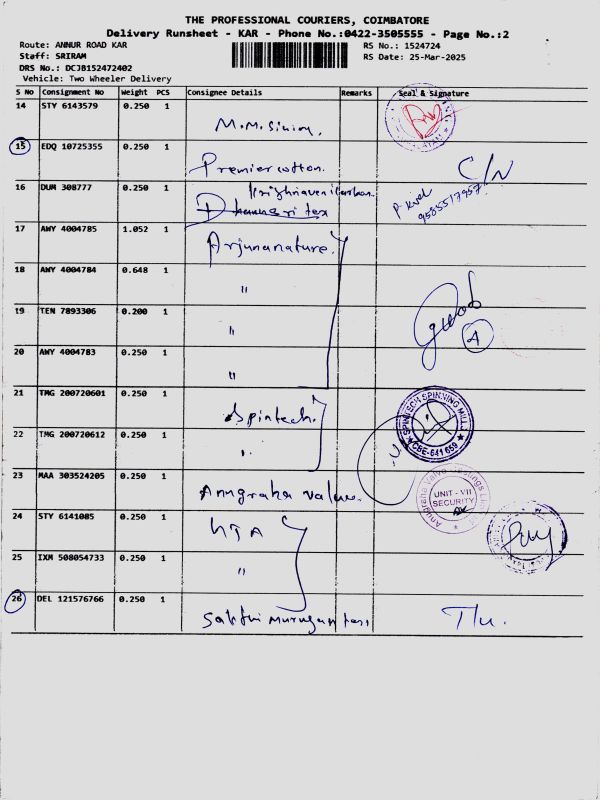 THE PROFESSIONAL COURIERS, COIMBATORE
Delivery Runsheet - KAR - Phone No.:0422-3505555 - Page No.:2
Route: ANNUR ROAD KAR
RS No.: 1524724
Staff: SRIRAM
RS Date: 25-Mar-2025
DRS No.: DCJB152472402
Vehicle: Two Wheeler Delivery
S No Consignment No Weight PCS Consignee Details Remarks Seal & Signature
14 STY 6143579 0.250 1
15 EDQ 10725355 0.250 1 Premier cotton. C/N
16 DUM 308777 0.250 1
9585517957
17 AWY 4004785 1.052 1 Arjunanature.
18 AWY 4004784 0.648 1 "
19 TEN 7893306 0.200 1 "
20 AWY 4004783 0.250 1 "
A
21 TMG 200720601 0.250 1 Spintech.
SPINTECH SPINNING MILL
CBE-641 659
22 TMG 200720612 0.250 1 "
23 MAA 303524205 0.250 1 Anugraha value.
UNIT - VII
SECURITY
24 STY 6141085 0.250 1
25 IXM 508054733 0.250 1 "
26 DEL 121576766 0.250 1 Sakthi Murugan